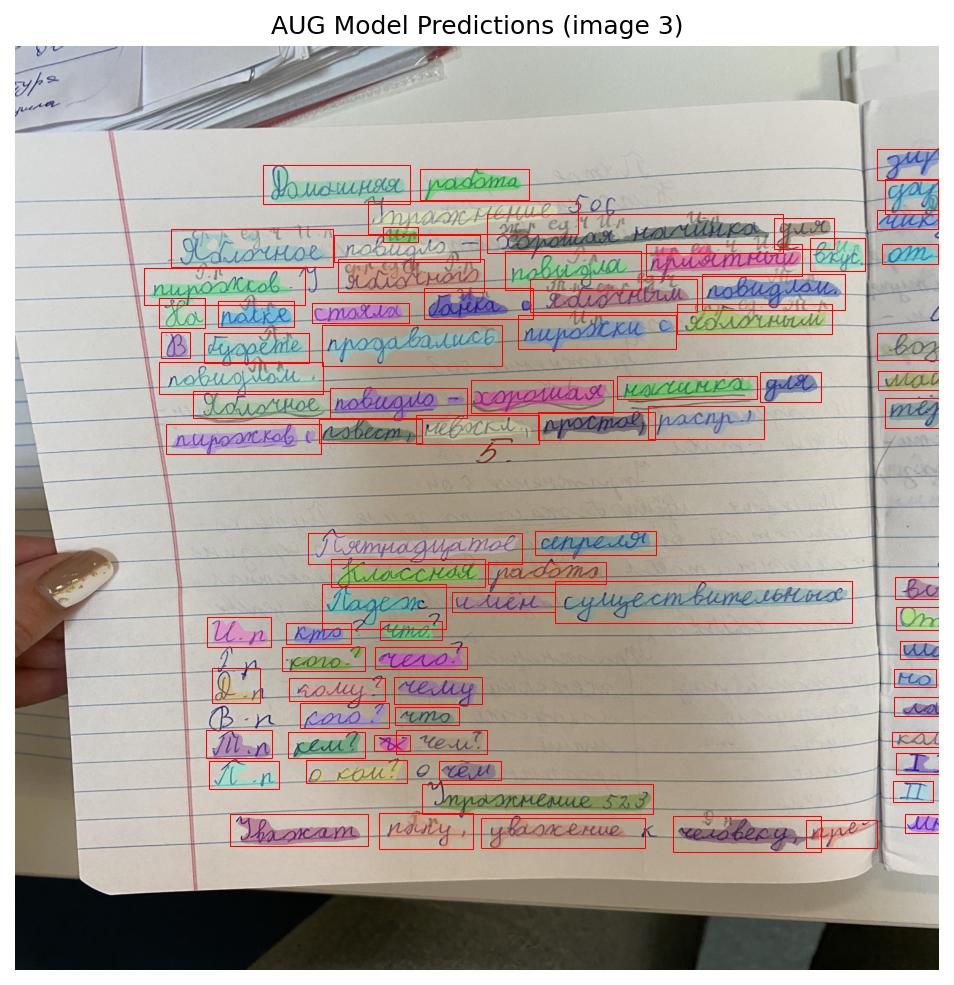 AUG Model Predictions (image 3)
Домашняя работа
Упражнение 506
Яблочное повидло – хорошая начинка для
пирожков. У яблочного повидла приятный вкус.
На полке стояла банка с яблочным повидлом.
В буфете продавались пирожки с яблочным
повидлом.
Яблочное повидло – хорошая начинка для
пирожков. повест, невоскл., простое, распр.,
5.
Пятнадцатое апреля
Классная работа
Падеж имён существительных
И.п кто? что?
Р.п кого? чего?
Д.п кому? чему
В.п кого? что
Т.п кем? чем?
П.п о ком? о чём
Упражнение 523
Уважат папу, уважение к человеку, пре-
от
во
но
I
II